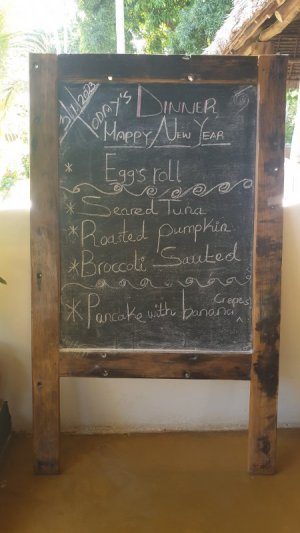 31/12/2023
Today's Dinner
Happy New Year
* Egg's roll
* Seared Tuna
* Roasted pumpkin
* Broccoli Sauted
* Pancake with banana
Crepes
^